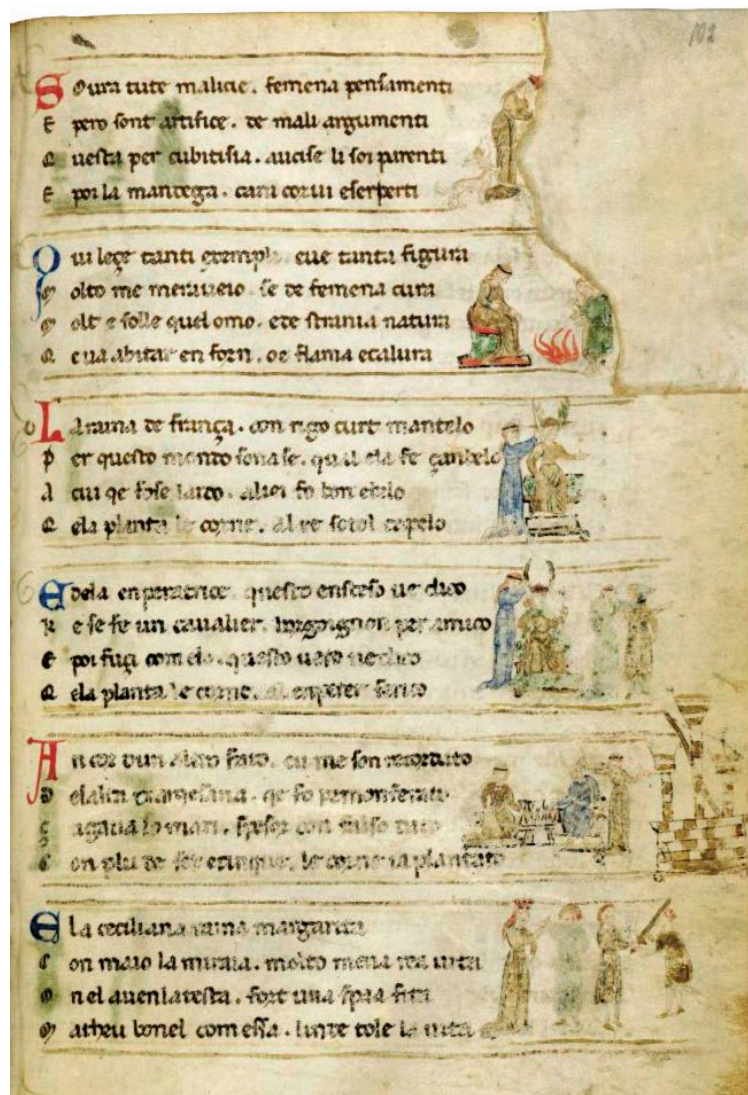 102
Soura tute malicie . femena pensamenti
E pero sont artifice . de mali argumenti
Questa per cubitisia . aucise li soi parenti
E poi la mantega . cani corui eserpenti
Qui leçe tanti exempli . eue tanta figura
Molto me meraueio . se de femena cura
Molt e folle quel omo . ede strania natura
Q eua abitar en forn . de flama ecalura
La raina de frança . con rigo curt mantelo
Per questo mondo sona se . qual ela fe çambelo
A cui qe fose laido . alei fo bon ebelo
Qela planta le corne . al re sotol capelo
E dela enperatrice . questo ensteso ue dico
Ke se fe un caualier . per amico
E poi fuçi com elo . questo uero ue dico
Qela planta le corne . al enperer
An cor dun altro fato . eu me son recordato
Delalta . qe fo
lo mari . con falso
Con plu de . le corne ia plantato
E la ceciliana raina margarita
Con maio la muraia . molto mena rea uita
Onel auenlatesta . fort una spaa
Matheu bonel com essa . tole la uita